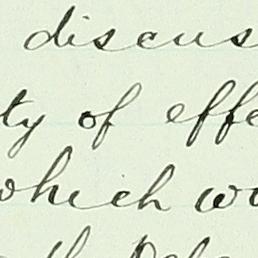 discus
ty of effe
which wo